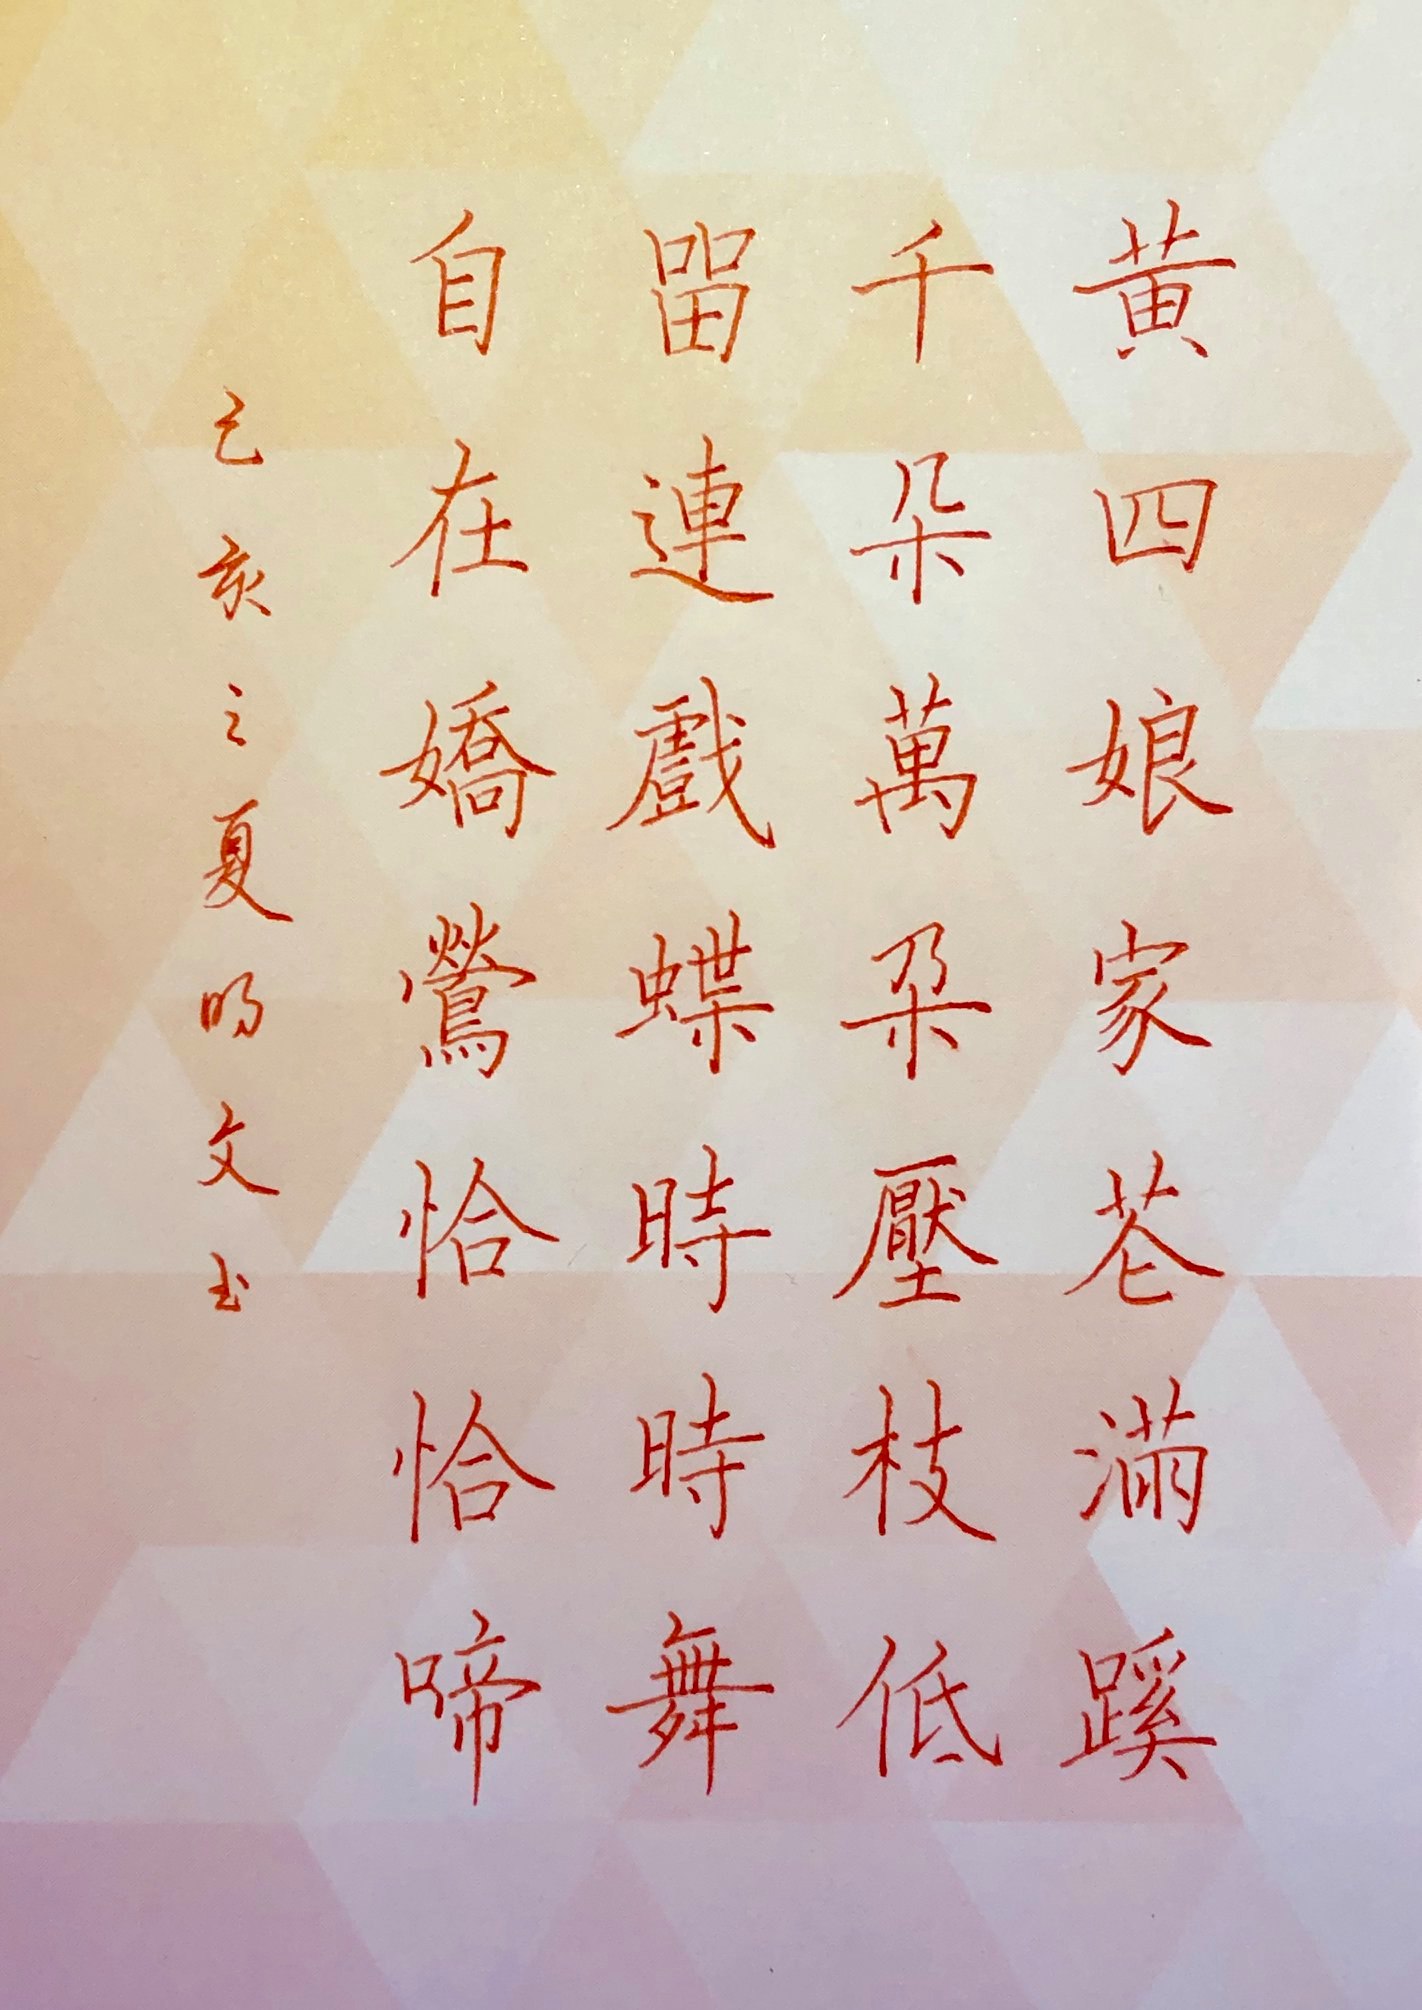 黄四娘家花滿蹊
千朵萬朶壓枝低
留連戲蝶時時舞
自在嬌鶯恰恰啼
己亥之夏明文书